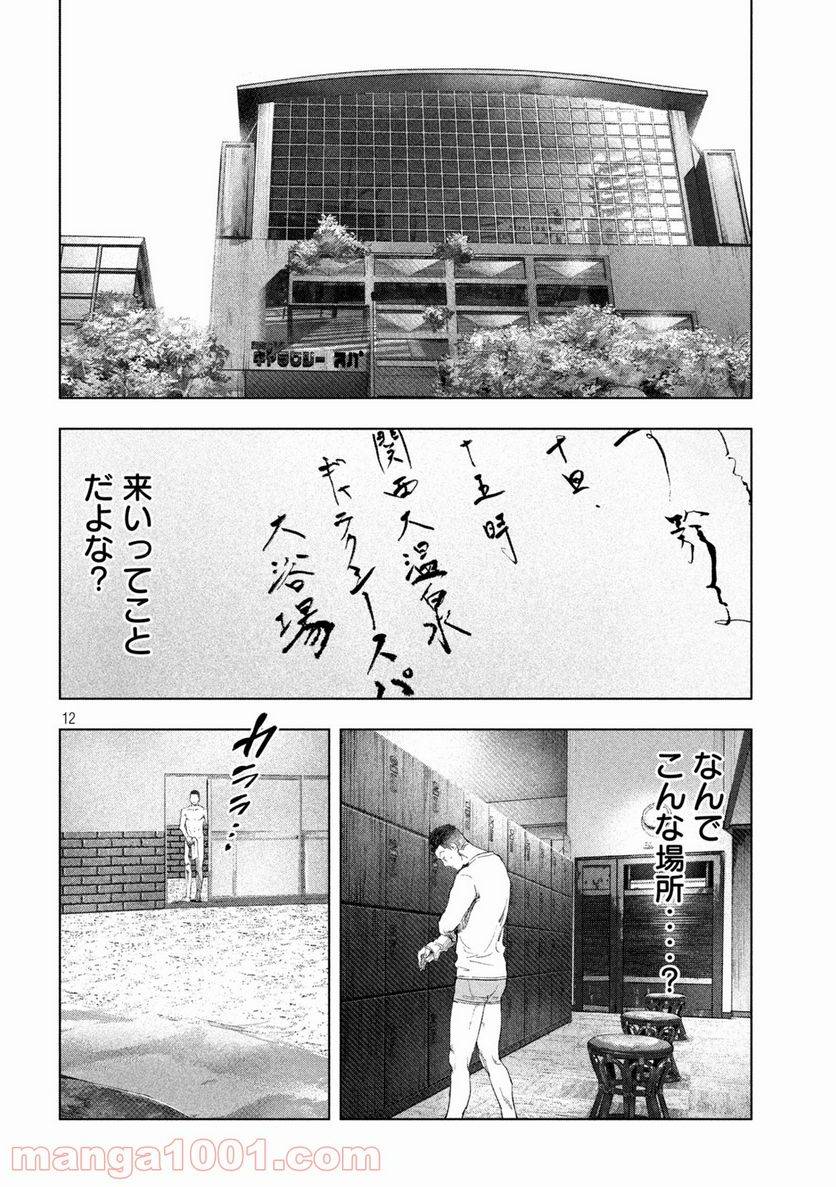 ギャラクシー スパ
十日、
十五時
関西大温泉
ギャラクシースパ
大浴場
来いってこと
だよな？
12
なんで
こんな場所‥‥‥？
カラララ‥‥
manga1001.com